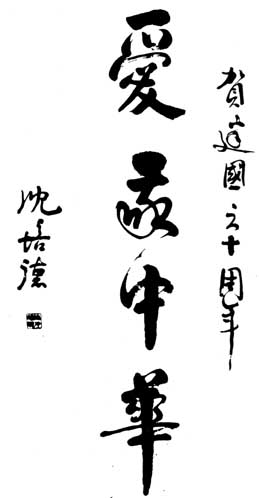 賀建國六十周年
愛我中華
沈培德